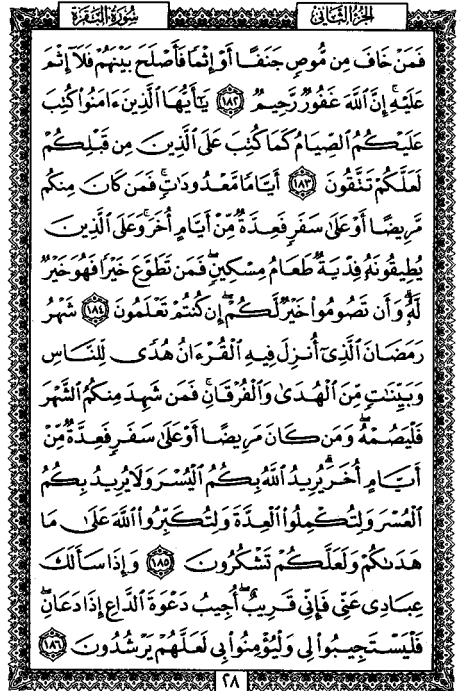 الجزء الثاني
سورة البقرة
فَمَنْ خَافَ مِن مُّوصٍ جَنَفًا أَوْ إِثْمًا فَأَصْلَحَ بَيْنَهُمْ فَلَآ إِثْمَ
عَلَيْهِ ۚ إِنَّ ٱللَّهَ غَفُورٌ رَّحِيمٌ ١٨٢ يَـٰٓأَيُّهَا ٱلَّذِينَ ءَامَنُوا۟ كُتِبَ
عَلَيْكُمُ ٱلصِّيَامُ كَمَا كُتِبَ عَلَى ٱلَّذِينَ مِن قَبْلِكُمْ
لَعَلَّكُمْ تَتَّقُونَ ١٨٣ أَيَّامًا مَّعْدُودَٰتٍ ۚ فَمَن كَانَ مِنكُم
مَّرِيضًا أَوْ عَلَىٰ سَفَرٍ فَعِدَّةٌ مِّنْ أَيَّامٍ أُخَرَ ۚ وَعَلَى ٱلَّذِينَ
يُطِيقُونَهُۥ فِدْيَةٌ طَعَامُ مِسْكِينٍ ۖ فَمَن تَطَوَّعَ خَيْرًا فَهُوَ خَيْرٌ
لَّهُۥ ۚ وَأَن تَصُومُوا۟ خَيْرٌ لَّكُمْ ۖ إِن كُنتُمْ تَعْلَمُونَ ١٨٤ شَهْرُ
رَمَضَانَ ٱلَّذِىٓ أُنزِلَ فِيهِ ٱلْقُرْءَانُ هُدًى لِّلنَّاسِ
وَبَيِّنَـٰتٍ مِّنَ ٱلْهُدَىٰ وَٱلْفُرْقَانِ ۚ فَمَن شَهِدَ مِنكُمُ ٱلشَّهْرَ
فَلْيَصُمْهُ ۖ وَمَن كَانَ مَرِيضًا أَوْ عَلَىٰ سَفَرٍ فَعِدَّةٌ مِّنْ
أَيَّامٍ أُخَرَ ۗ يُرِيدُ ٱللَّهُ بِكُمُ ٱلْيُسْرَ وَلَا يُرِيدُ بِكُمُ
ٱلْعُسْرَ وَلِتُكْمِلُوا۟ ٱلْعِدَّةَ وَلِتُكَبِّرُوا۟ ٱللَّهَ عَلَىٰ مَا
هَدَىٰكُمْ وَلَعَلَّكُمْ تَشْكُرُونَ ١٨٥ وَإِذَا سَأَلَكَ
عِبَادِى عَنِّى فَإِنِّى قَرِيبٌ ۖ أُجِيبُ دَعْوَةَ ٱلدَّاعِ إِذَا دَعَانِ ۖ
فَلْيَسْتَجِيبُوا۟ لِى وَلْيُؤْمِنُوا۟ بِى لَعَلَّهُمْ يَرْشُدُونَ ١٨٦
٢٨